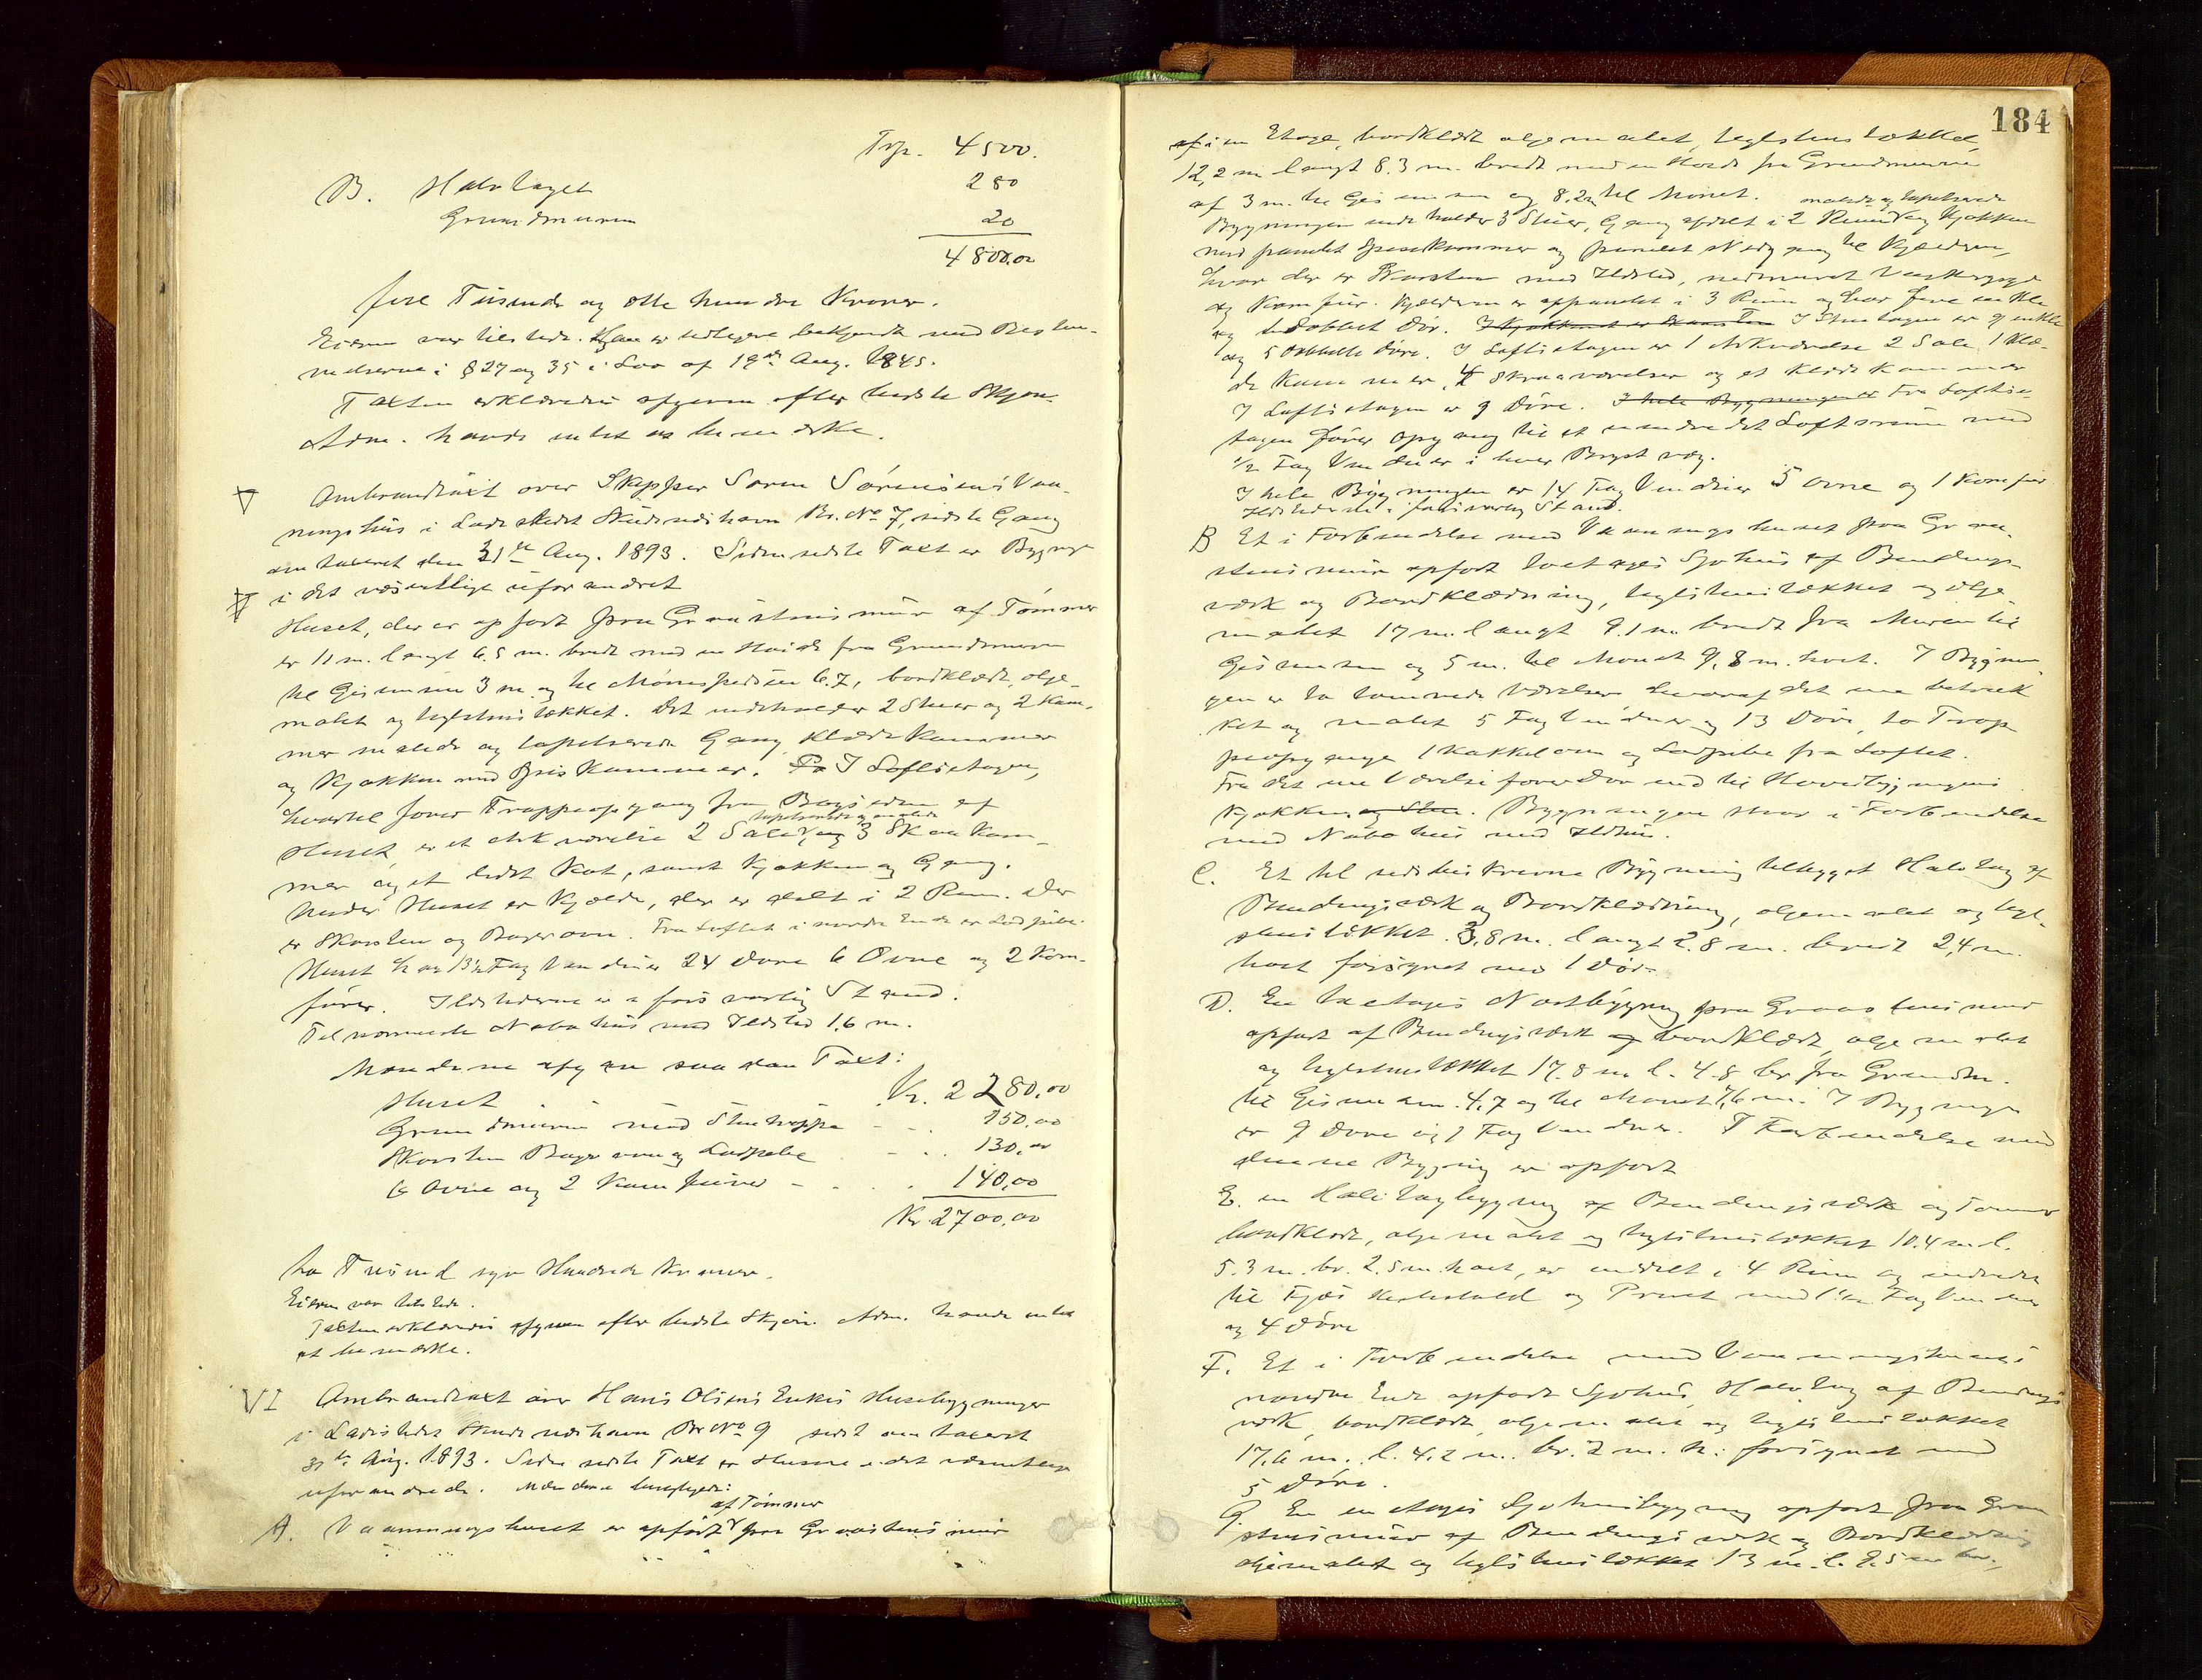 Trp. 4500.
B. Halvtaget 280
Grundmuren 20
4800.00
fire Tusinde og otte hundre Kroner.
Eieren var tilstede. Han er tidligere bekjendt med Bestem-
melserne i § 27 og 35 i Lov af 19de Aug. 1845.
Taxten erklæredes afgiven efter bedste Skjøn.
Adm. havde intet at bemærke.
V Ombrandtaxt over Skipper Søren Sørensens Vaa-
ningshus i Ladestedet Skudeneshavn Br. No 7, sidste Gang
omtaxeret den 31te Aug. 1893. Siden sidste Taxt er Bygnge
i det væsentlige uforandret
Huset, der er opført paa Graastensmur af Tømmer
er 11 m. langt 6.5 m. bredt med en Høide fra Grundmuren
til Gesimsen 3 m. og til Mønespidsen 6.7, bordklædt, olje-
malet og teglstenstækket. Det indeholder 2 Stuer og 2 Kam-
mer malede og tapetserede Gang Klædekammer
og Kjøkken med Spiskammer. I Loftsetagen,
hvortil fører Trappeopgang fra Bagsiden af
tapetserede og malede
Huset, er et Arkværelse 2 Sale og 3 Skraakam-
mer og et lidet Kot, samt Kjøkken og Gang.
Under Huset er Kjelder, der er delt i 2 Rum. Der
er Skorsten og Bagerovn. Fra Loftet i nordre Ende er Ludpibe.
Huset har 13½ Fag Vinduer 24 Døre 6 Ovne og 2 Kom-
fører. Ildstederne er i forsvarlig Stand.
Til nærmeste Nabohus med Ildsted 1.6 m.
Mændene afgav saadan Taxt:
Huset Kr. 2280.00
Grundmuren med Stentrappe 150.00
Skorsten Bagerovn og Ludpibe 130.00
6 Ovne og 2 Komfører 140.00
Kr. 2700.00
to Tusind syv Hundrede Kroner.
Eieren var tilstede.
Taxten erklæredes afgiven efter bedste Skjøn. Adm. havde intet
at bemærke.
VI Ombrandtaxt over Hans Olsens Enkes Husebygninger
i Ladestedet Skudeneshavn Br No 9 sidst omtaxeret
31te Aug. 1893. Siden sidste Taxt er Husene i det væsentlige
uforandrede. Mændene besigtigede:
af Tømmer
A. Vaaningshuset er opført paa Graastensmur
184
af i en Etage, bordklædt oljemalet, teglstenstækket,
12,2 m langt 8.3 m. bredt med en Høide fra Grundmuren
af 3 m. til Gesimsen og 8.2 til Mønet.
malede og tapetserede
Bygningen indeholder 3 Stuer, Gang afdelt i 2 Rum og Kjøkken
med panelet Spisekammer og panelet Nedgang til Kjælderen,
hvor der er Skorsten med Ildsted, nedmuret Vaskegryde
og Komfur. Kjælderen er oppanelet i 3 Rum og har fire enkle
og dobbelt Dør. I Kjøkkenet er Skorsten I Stuetagen er 9 enkle
og 5 dobbelte Døre. I Loftsetagen er 1 Arkværelse 2 Sale 1 Klæ-
de Kammer, 4 Skraaværelser og et Klædekammer
I Loftsetagen er 9 Døre. I hele Bygningen er Fra Loftse-
tagen fører Opgang til et uindredet Loftsrum med
1/2 Fag Vinduer i hver Brystvæg.
I hele Bygningen er 14 Fag Vinduer 5 Ovne og 1 Komfur
Ildstederne i forsvarlig Stand.
B Et i Forbindelse med Vaaningshuset paa Graa-
stensmur opført toetages Sjøhus af Bindings-
værk og Bordklædning, teglstenstækket og olje-
malet 17 m. langt 9.1 m. bredt fra Muren til
Gesimsen og 5 m. til Mønet 9,8 m. høit. I Bygnin-
gen er to tømrede Værelser hvoraf det ene betræk-
ket og malet 5 Fag Vinduer og 13 Døre, to Trap-
peopgange 1 Kakkelovn og Ludpibe fra Loftet.
Fra det ene Værelse fører Dør ind til Hovedbygningens
Kjøkken og Stue. Bygningen staar i Forbindelse
med Nabohus med Ildhus.
C. Et til sidstbeskrevne Bygning tilbygget Halvtag af
Bindingsværk og Bordklædning, oljemalet og tegl-
stenstækket. 3,8 m. langt 2.8 m. bredt 2,4 m.
høit forsynet med 1 Dør.
D. En toetages Nøstbygning paa Graastensmur
opført af Bindingsværk og bordklædt, oljemalet
og teglstenstækket 17.8 m l. 4.8 br fra Grundm.
til Gesimsen 4,7 og til Mønet 7,6 m. I Bygningen
er 9 Døre og 1 Fag Vinduer. I Forbindelse med
denne Bygning er opført
E. en Halvtagbygning af Bindingsværk og Tømmer
bordklædt, oljemalet og teglstenstækket 10.4 m l.
5.3 m. br. 2.5 m. høit, er inddelt i 4 Rum og indredet
til Fjøs og Privet med Fag Vinduer
og 4 Døre
F. Et i Forbindelse med Vaaningshusets
nordre Ende opført Sjøhus, Halvtag af Bindings-
værk, bordklædt, oljemalet og teglstenstækket
17,6 m. l. 4.2 m. br. 2 m. h. forsynet med
5 Døre.
G. En en etages Sjøhusbygning opført paa Graa-
stensmur af Bindingsværk og Bordklædning
oljemalet og teglstenstækket 13 m. l. 8.5 m br.,